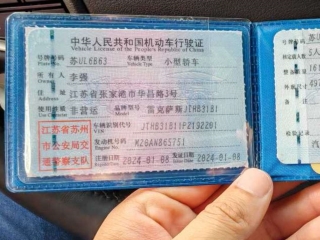 中华人民共和国机动车行驶证
Vehicle License of the People's Republic of China
号牌号码 苏UL6B63 车辆类型 小型轿车
Plate No. Vehicle Type
所有人 李强
Owner
住址 江苏省张家港市华昌路3号
Address
使用性质 非营运 品牌型号 雷克萨斯JTHB31B1
Use Character Model
江苏省苏州
市公安局交
通警察支队
车辆识别代号
VIN
发动机号码
Engine No.
注册日期 2024-01-08 发证日期 2024-01-08
Register Date Issue Date